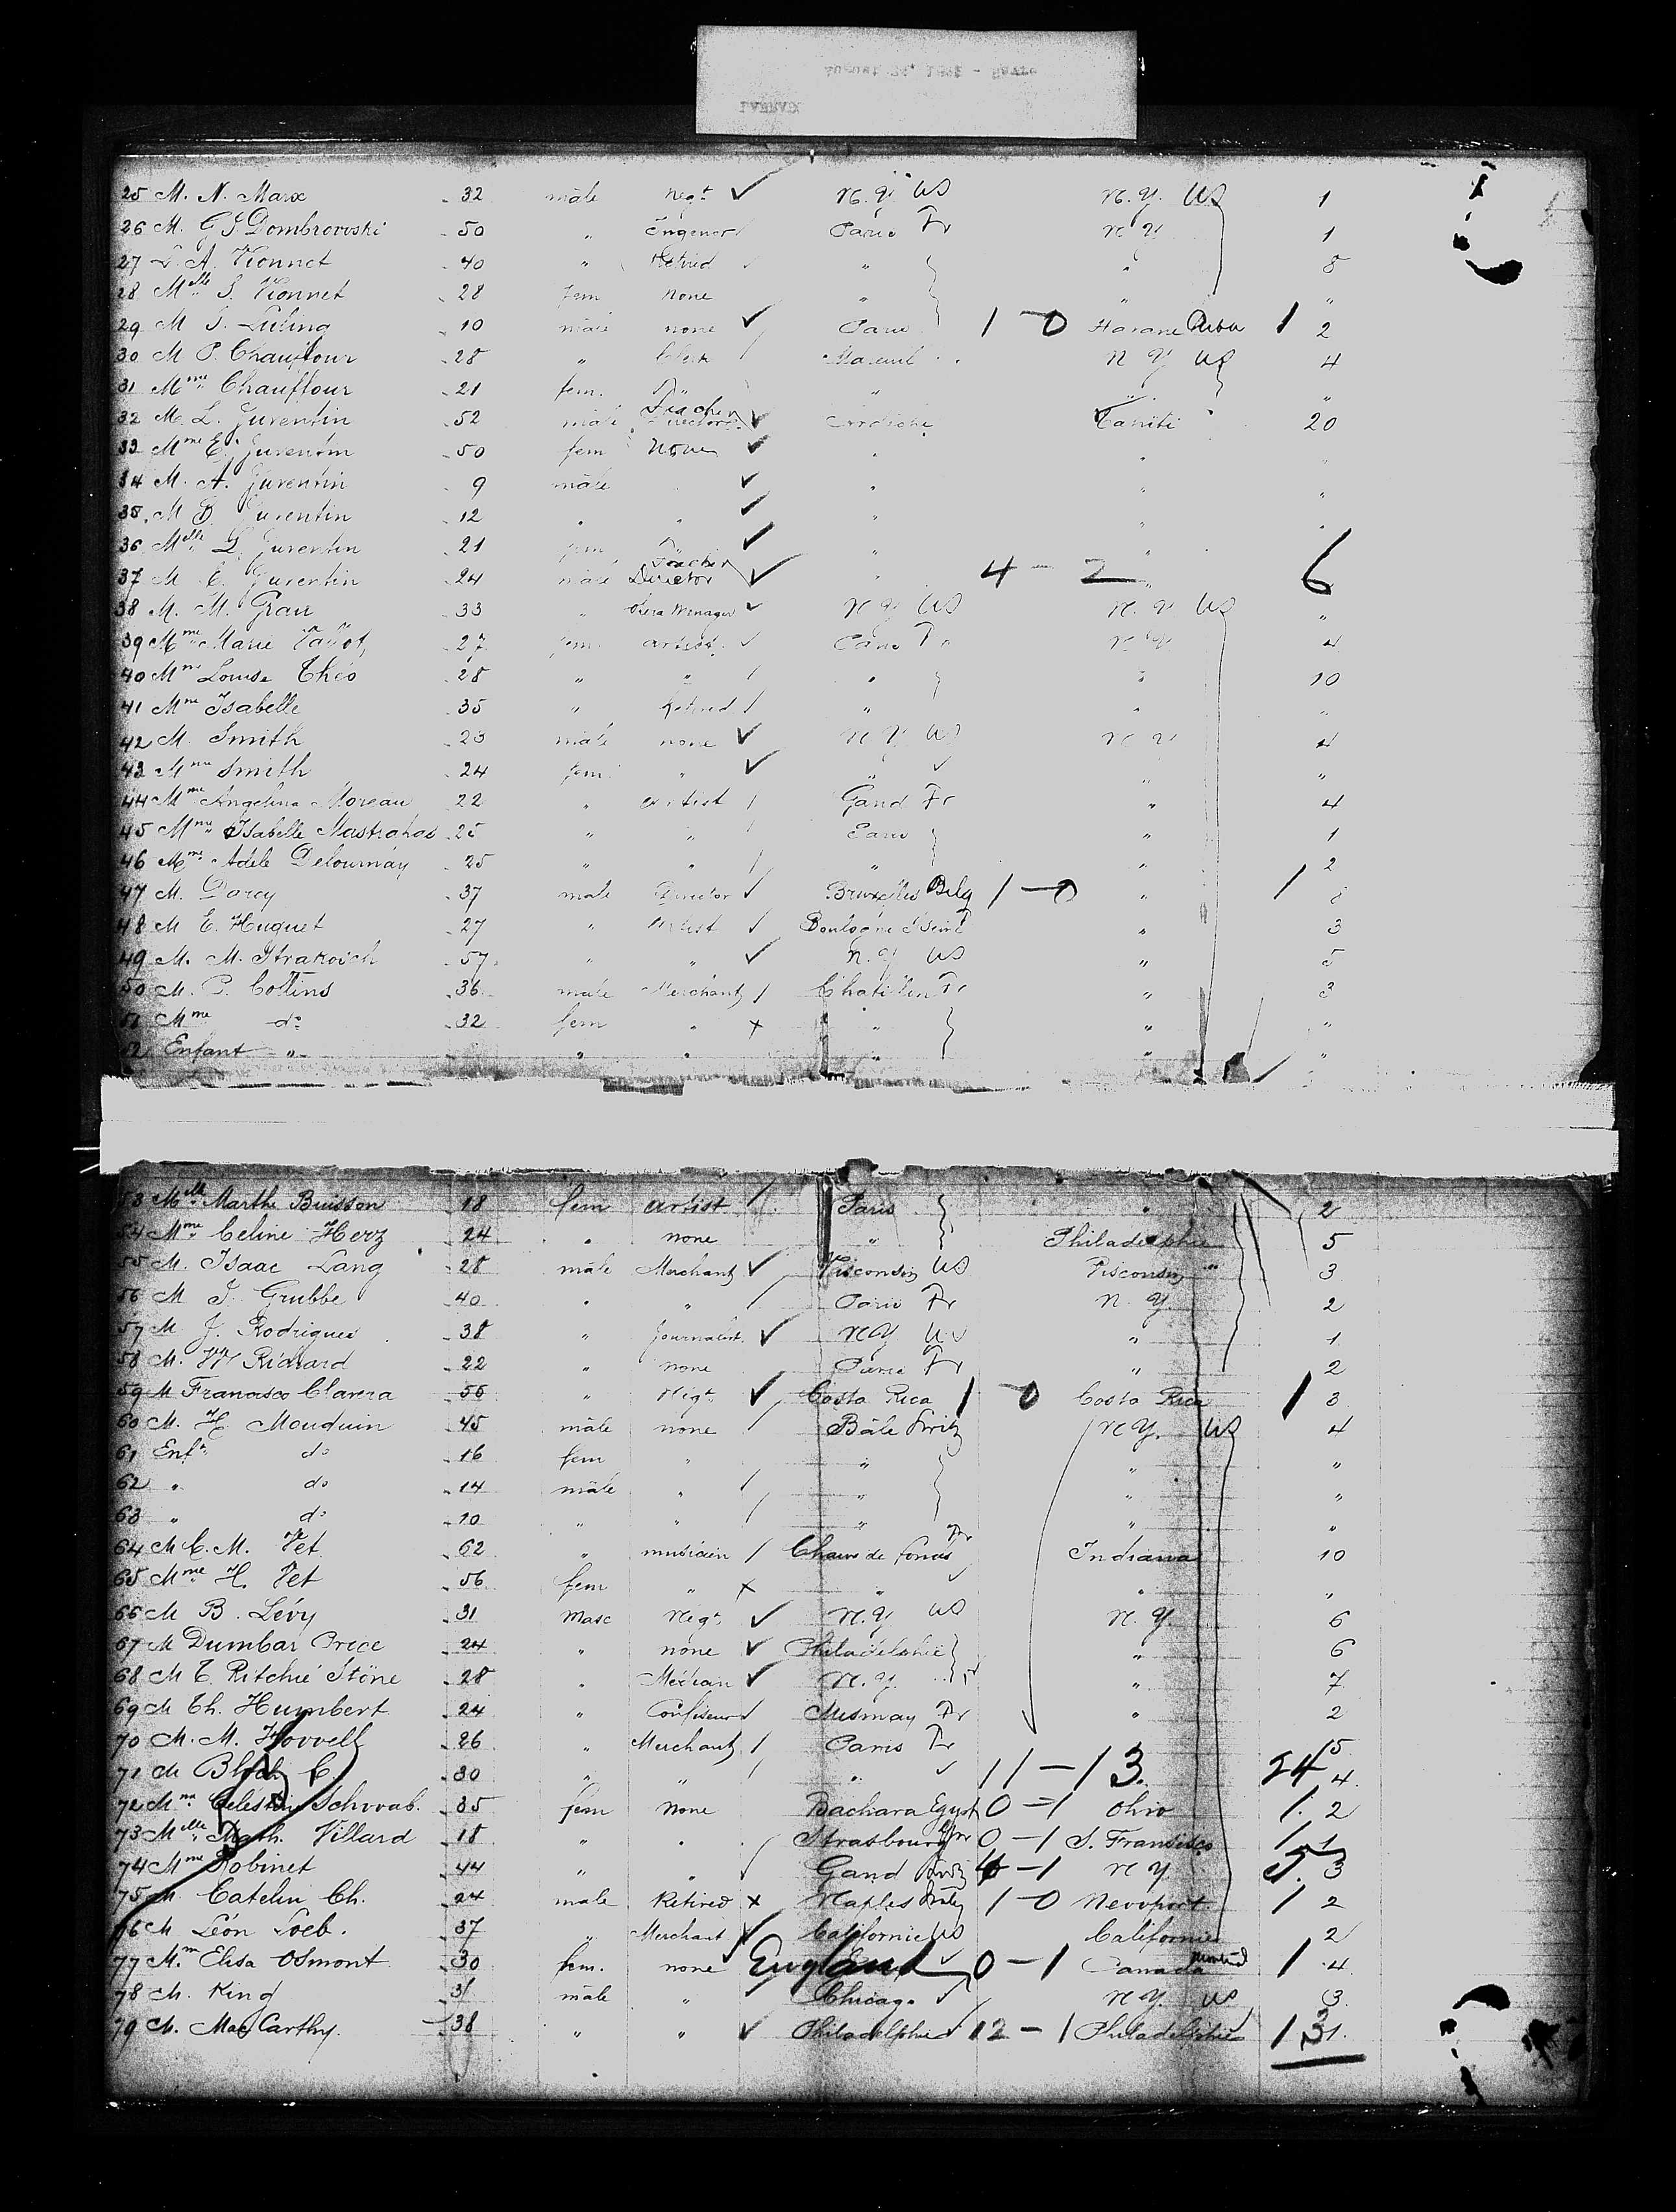 25 M. N. Marx 32 mâle Negt N. Y. US N. Y. US 1
26 M. G S Dombrovoski 50 " Engener Paris Fr N Y 1
27 L. A. Vionnet 40 " Retired " " 8
28 Melle S. Vionnet 28 fem none " " "
29 M S. Luling 10 mâle none Paris 1 - 0 Havane Cuba 1 2
30 M P. Chauffour 28 " Clerk Mareuil N Y US 4
31 Mme Chauffour 21 fem. " " " "
32 M. L. Juventin 52 mâle Teacher Director Ardèche Taniti 20
33 Mme E. Juventin 50 fem None " " "
34 M. A. Juventin 9 mâle " " "
35 M D. Juventin 12 " " " " "
36 Melle L. Juventin 21 fem " " "
37 M. E. Juventin 24 mâle Teacher Director " 4 - 2 " 6
38 M. M. Grau 33 " Opera Manager N Y US N. Y US "
39 Mme Marie 27 fem. artist Paris Fr N Y 4
40 Mme Louise Théo 28 " " " " 10
41 Mme Isabelle 35 " Retired " " "
42 M. Smith 23 mâle none N Y US N Y 4
43 Mme Smith 24 fem. " " " "
44 Mme Angelina Moreau 22 " artist Gand Fr " 4
45 Mme Isabelle Mastrahas 25 " " Paris " 1
46 Mme Adele Delournay 25 " " " " 2
47 M. Darcy 37 male Director Bruxelles Belg 1 - 0 " 1
48 M E. Huguet 27 " Artist Boulogne s/Seine " 3
49 M. M. Strakosch 57 " " N. Y US " 5
50 M. P. Collins 36 male Merchant Chatillon Fr " 3
51 Mme do 32 fem " " " "
52 Enfant " " " " " "
53 Melle Marthe Buisson 18 fem artist Paris " 2
54 Mme Celine Herz 24 " none " Philadelphie 5
55 M. Isaac Lang 28 mâle Merchant Visconsin US Visconsin 3
56 M J. Grubbe 40 " " Paris Fr N. Y. 2
57 M J. Rodrigues 38 " Journalist N Y US " 1
58 M. Wm Ricard 22 " none Paris Fr " 2
59 M Francisco Clavera 56 " Negt Costa Rica 1 - 0 Costa Rica 1 3
60 M. H Mouduin 45 mâle none Bâle Switz N Y. US 4
61 Enft do 16 fem " " " "
62 " do 14 mâle " " " "
63 " do 10 " " " " "
64 M C. M. Vet 62 " musicien Chaux de fonds Indiana 10
65 Mme H. Vet 56 fem " " " "
66 M B. Lévy 31 Masc Negt N. Y US N. Y. 6
67 M Dumbar Price 24 " none Philadelphie " 6
68 M C. Ritchie Stöne 28 " Médecian N. Y. " 7
69 M Ch. Humbert 24 " Confiseur Mismay Fr " 2
70 M. M. Hovvell 26 " Merchant Paris Fr 5
71 M Bloch C 30 " " " 11 - 13 24 4
72 Mme Celestin Schwab. 35 fem none Bachara Egypt 0 - 1 Ohio 1 2
73 Melle Math. Villard 18 " " Strasbourg 0 - 1 S. Fransisco 1 1
74 Mme Robinet 44 " " Gand 4 - 1 N Y 5 3
75 M. Catelin Ch. 24 male Retired Naples Italy 1 - 0 Newport 1 2
76 M Léon Loeb. 37 " Merchant Californie US Californie 2
77 Mme Elisa Osmont 30 fem. none England 0 - 1 Canada 1 4
78 M. King 31 mâle " Chicago N Y US 3
79 M. Mac Carthy. 38 " " Philadelphie 12 - 1 Philadelphie 13 1.